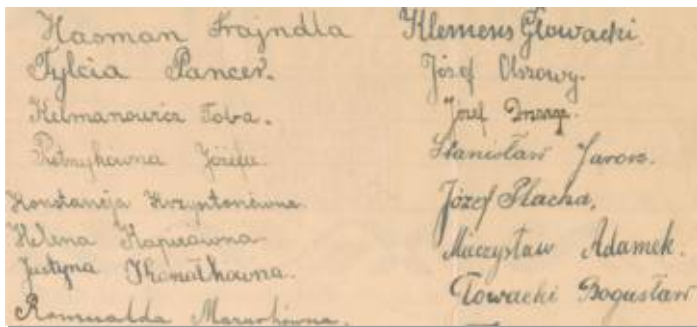 Hasman Frajndla
Tylcia Pancer.
Kelmanowicz Toba.
Pietrzykowna Józefa.
Konstancja Krzysztonówna.
Helena Kapuśówna
Justyna
Romualda
Klemens Głowacki.
Józef Olszowy.
Józef
Stanisław Jarosz.
Józef Płacha.
Mieczysław Adamek.
Głowacki Bogusław